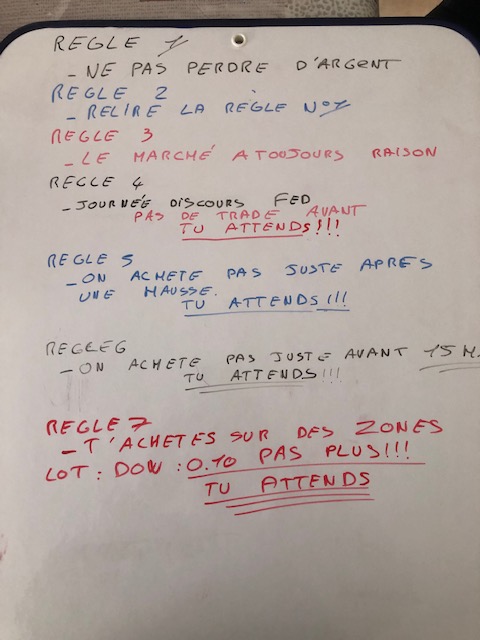 REGLE 1
- NE PAS PERDRE D'ARGENT
REGLE 2
- RELIRE LA REGLE N°1
REGLE 3
- LE MARCHÉ A TOUJOURS RAISON
REGLE 4
- JOURNÉE DISCOURS FED
PAS DE TRADE AVANT
TU ATTENDS!!!
REGLE 5
- ON ACHETE PAS JUSTE APRES
UNE HAUSSE.
TU ATTENDS!!!
REGLE 6
- ON ACHETE PAS JUSTE AVANT 15 H.
TU ATTENDS!!!
REGLE 7
- T'ACHETES SUR DES ZONES
LOT : DOW : 0.10 PAS PLUS!!!
TU ATTENDS